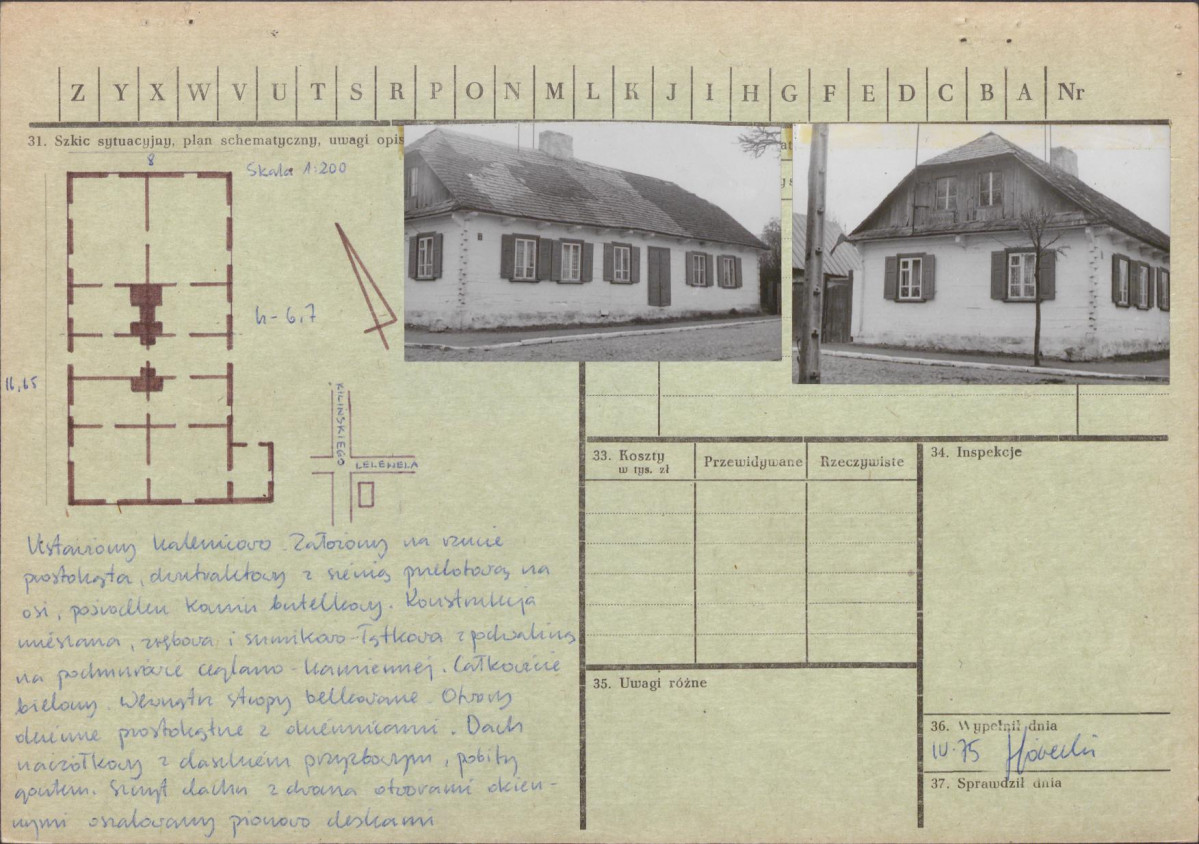 Z Y X W V U T S R P O N M L K J I H G F E D C B A Nr
31. Szkic sytuacyjny, plan schematyczny, uwagi opis
8
Skala 1:200
h - 6,7
16,65
KILIŃSKIEGO
LELEWELA
Ustawiony kalenicowo. Założony na rzucie
prostokąta, dwutraktowy z sienią przelotową na
osi, pośrodku komin butelkowy. Konstrukcja
mieszana, zrębowa i sumikowo-łątkowa z podwaliną
na podmurówce ceglano-kamiennej. Całkowicie
bielony. Wewnątrz stropy belkowane. Otwory
okienne prostokątne z okiennicami. Dach
naczółkowy z daszkiem przyzbowym, pobity
gontem. Szczyt dachu z dwoma otworami okien-
nymi oszalowany pionowo deskami
33. Koszty
w tys. zł
Przewidywane
Rzeczywiste
34. Inspekcje
35. Uwagi różne
36. Wypełnił dnia
IV.75
37. Sprawdził dnia